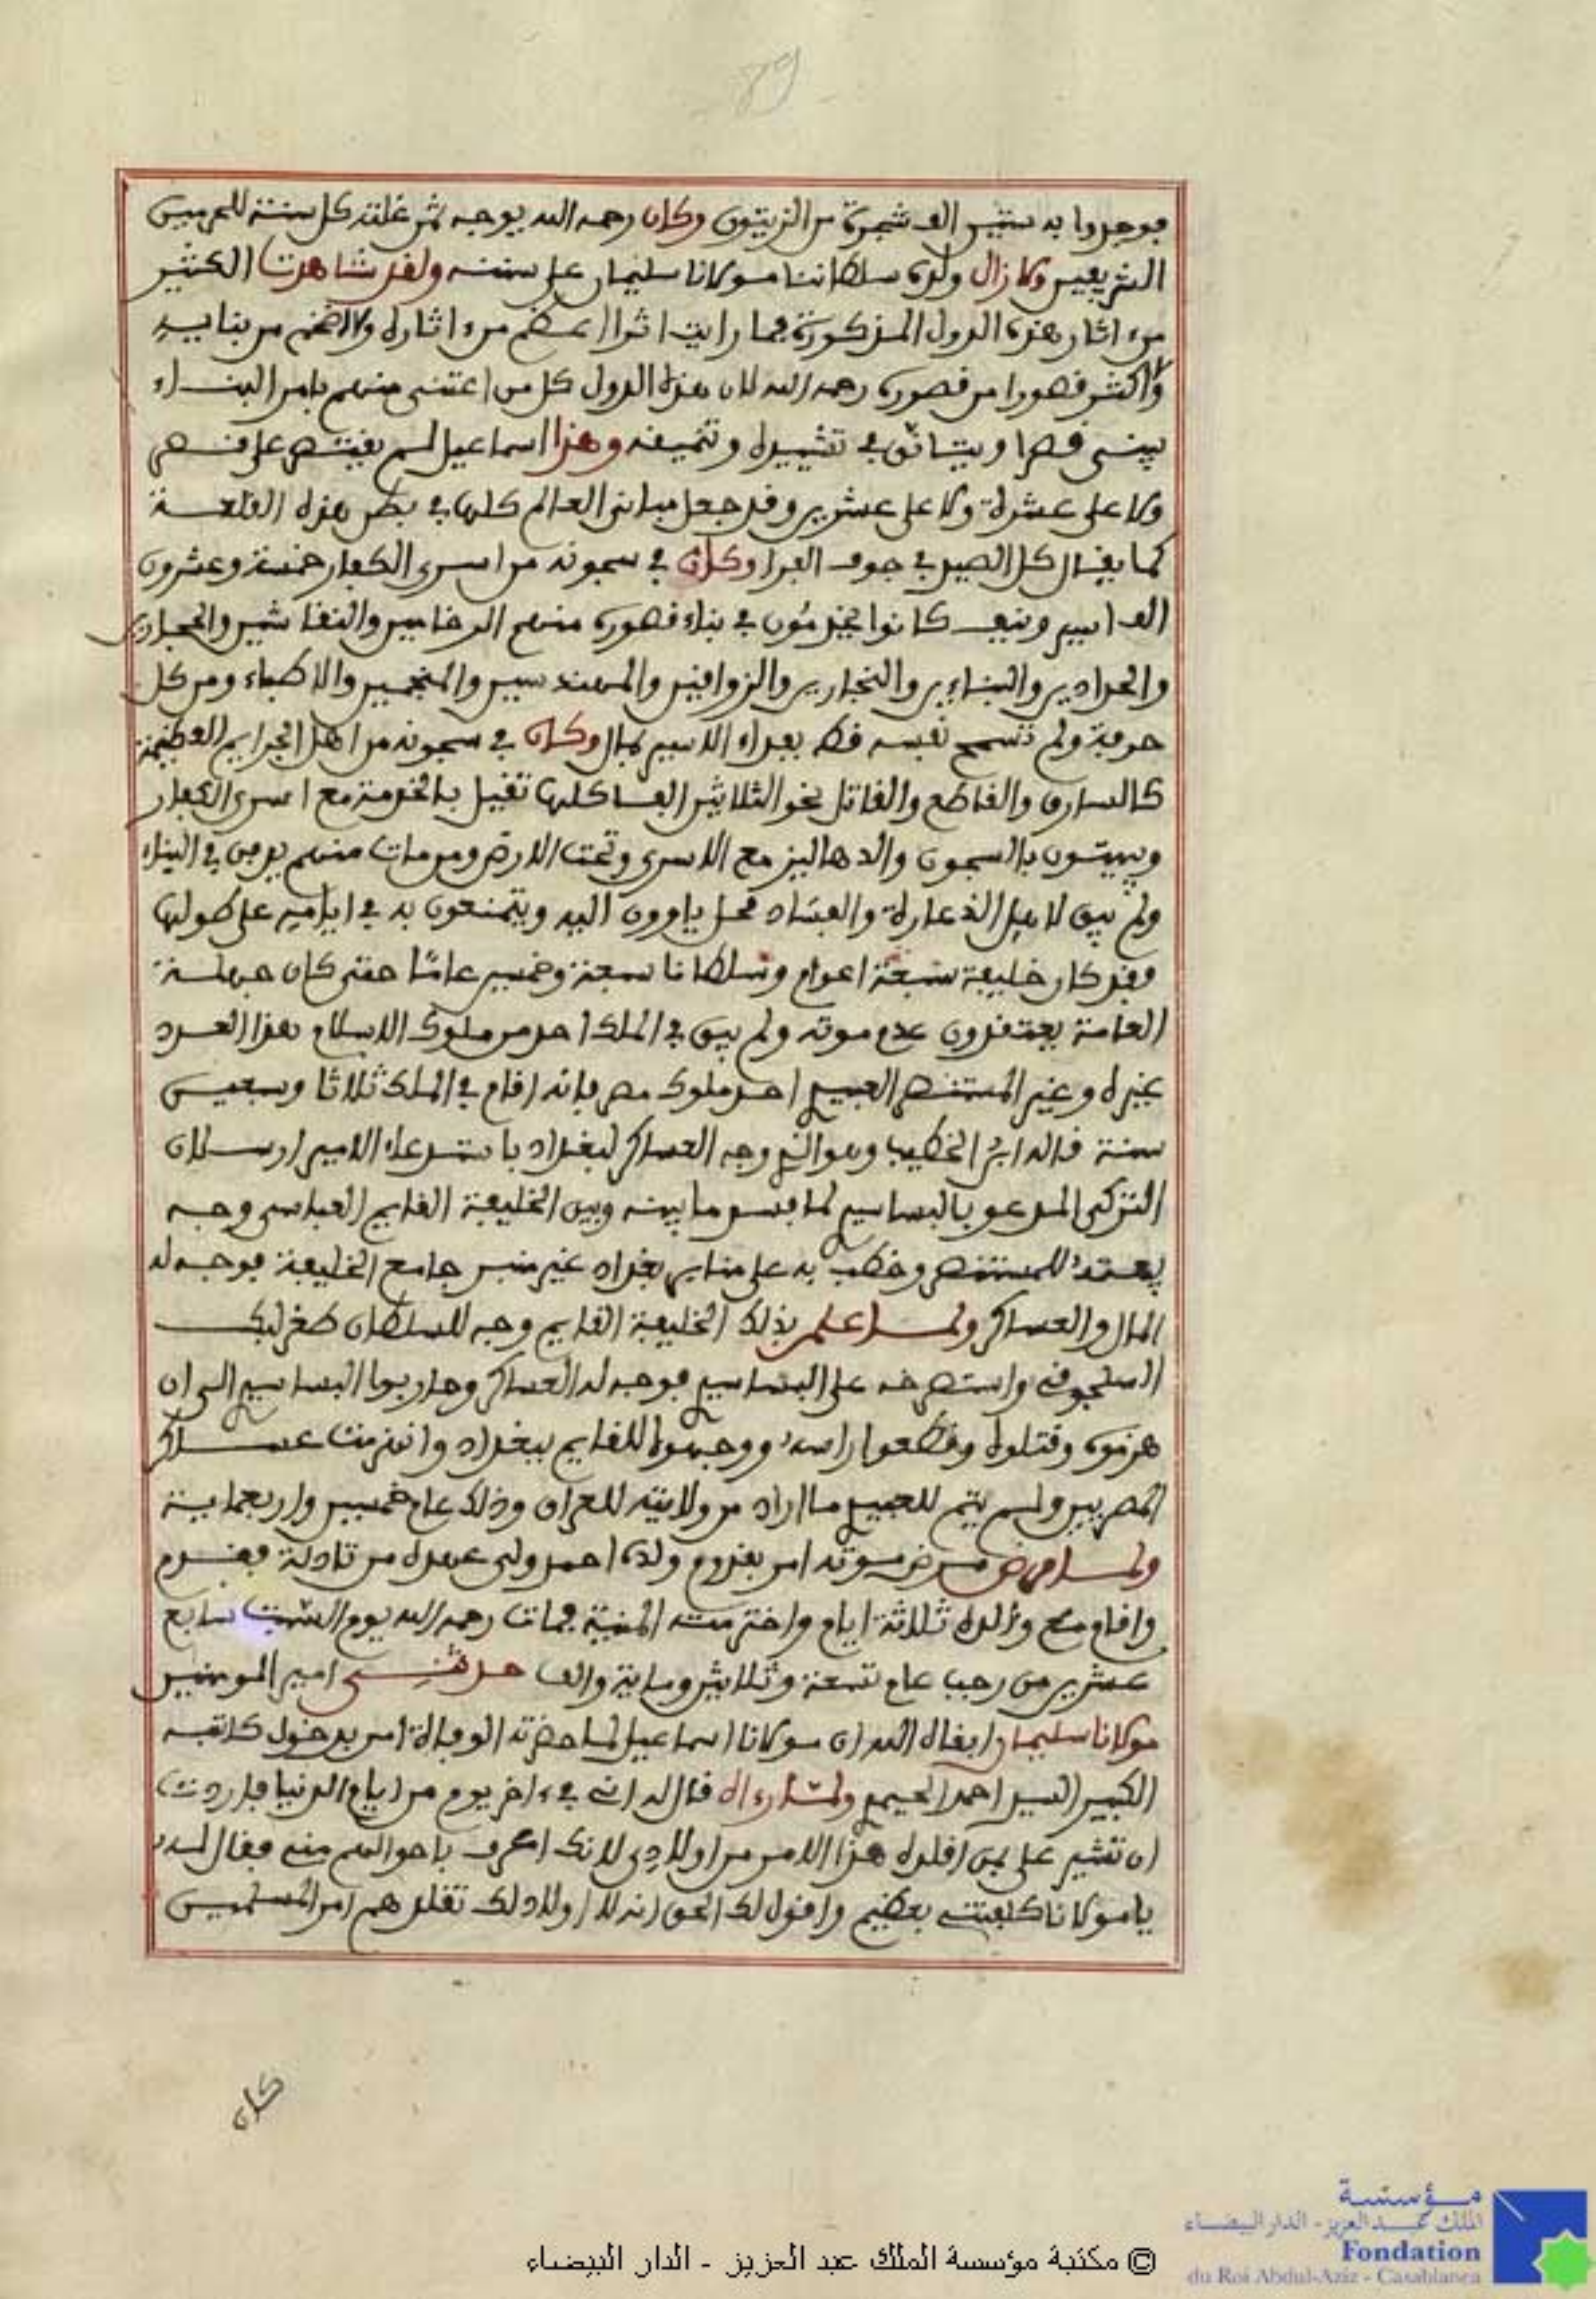 89
فوجدوا به ستين الف شجرة من الزيتون وكان رحمه الله يوجه ثمن غلته كل سنة للحرمين
الشريفين ولا زال ولده سلطاننا مولانا سليمان على سننه ولقد شاهدت الكثير
من ءاثار هذه الدول المذكورة فما رايت اثرا اعظم من ءاثاره ولا اضخم من بنايه
ولا اكثر قصورا من قصوره رحمه الله لان هذه الدول كل من اعتنى منهم بامر البناء
يبنى قصرا ويتانق في تشييده وتنميقه وهذا اسماعيل لم يقتصر على قصر
ولا على عشرة ولا على عشرين وقد جعل مبانى العالم كلها في بطن هذه القلعة
كما يقال كل الصيد في جوف الفرا وكان في سجونه من اسرى الكفار خمسة وعشرون
الف اسير ونيف كانوا يخدمون في بناء قصوره منهم الرخامين والنقاشين والحجارين
والحدادين والبنايين والنجارين والزواقين والمهندسين والمنجمين والاطباء ومن كل
حرفة ولم تسمح نفسه قط بفداء الاسير بمال وكان في سجونه من اهل الجرايم العظيمة
كالسارق والقاطع والقاتل نحو الثلاثين الفا كلها تقيل بالخدمة مع اسرى الكفار
ويبيتون بالسجون والدهاليز مع الاسرى وتحت الارض ومن مات منهم يدفن في البناء
ولم يبق لاهل الذعارة والفساد محل ياوون اليه ويتمنعون به في ايامه على طولها
فقد كان خليفة سبعة اعوام وسلطانا سبعة وخمسين عاما حتى كان جهلة
العامة يعتقدون عدم موته ولم يبق في الملك احد من ملوك الاسلام هذا العدد
غيره وغير المستنصر العبيدي احد ملوك مصر فانه اقام في الملك ثلاثا وسبعين
سنة قاله ابن الخطيب وهو الذي وجه العساكر لبغداد باستدعاء الامير ارسلان
التركى المدعو بالبساسيري لما فسد ما بينه وبين الخليفة القايم العباسى وجه
بيعته للمستنصر وخطب به على منابر بغداد غير منبر جامع الخليفة فوجه له
المال والعساكر ولما علم بذلك الخليفة القايم وجه للسلطان طغرلبك
السلجوقى واستصرخه على البساسيري فوجه له العساكر وحاربوا البساسيري الى ان
هزموه وقتلوه وقطعوا راسه ووجهوه للقايم ببغداد وانهزمت عساكر
المصريين ولم يتم للعبيدي ما اراد من ولايته للعراق وذلك عام خمسين واربعماية
ولما مرض مرض موته امر بقدوم ولده احمد ولى عهده من تادلة فقدم
واقام مع والده ثلاثة ايام واخترمته المنية فمات رحمه الله يوم السبت سابع
عشرين من رجب عام تسعة وثلاثين وماية والف حدثنى امير المومنين
مولانا سليمان ابقاه الله ان مولانا اسماعيل لما حضرته الوفاة امر بدخول كاتبه
الكبير السيد احمد اليحمدي ولما رءاه قال له انى في ءاخر يوم من ايام الدنيا فاردت
ان تشير على بمن اقلده هذا الامر من اولادي لانك اعرف باحوالهم منى فقال له
يا مولانا كلفتنى بعظيم واقول لك الحق انه لا اولاد لك تقلدهم امر المسلمين
كان
مؤسسة
الملك عبد العزيز - الدار البيضاء
Fondation
du Roi Abdul-Aziz - Casablanca
© مكتبة مؤسسة الملك عبد العزيز - الدار البيضاء